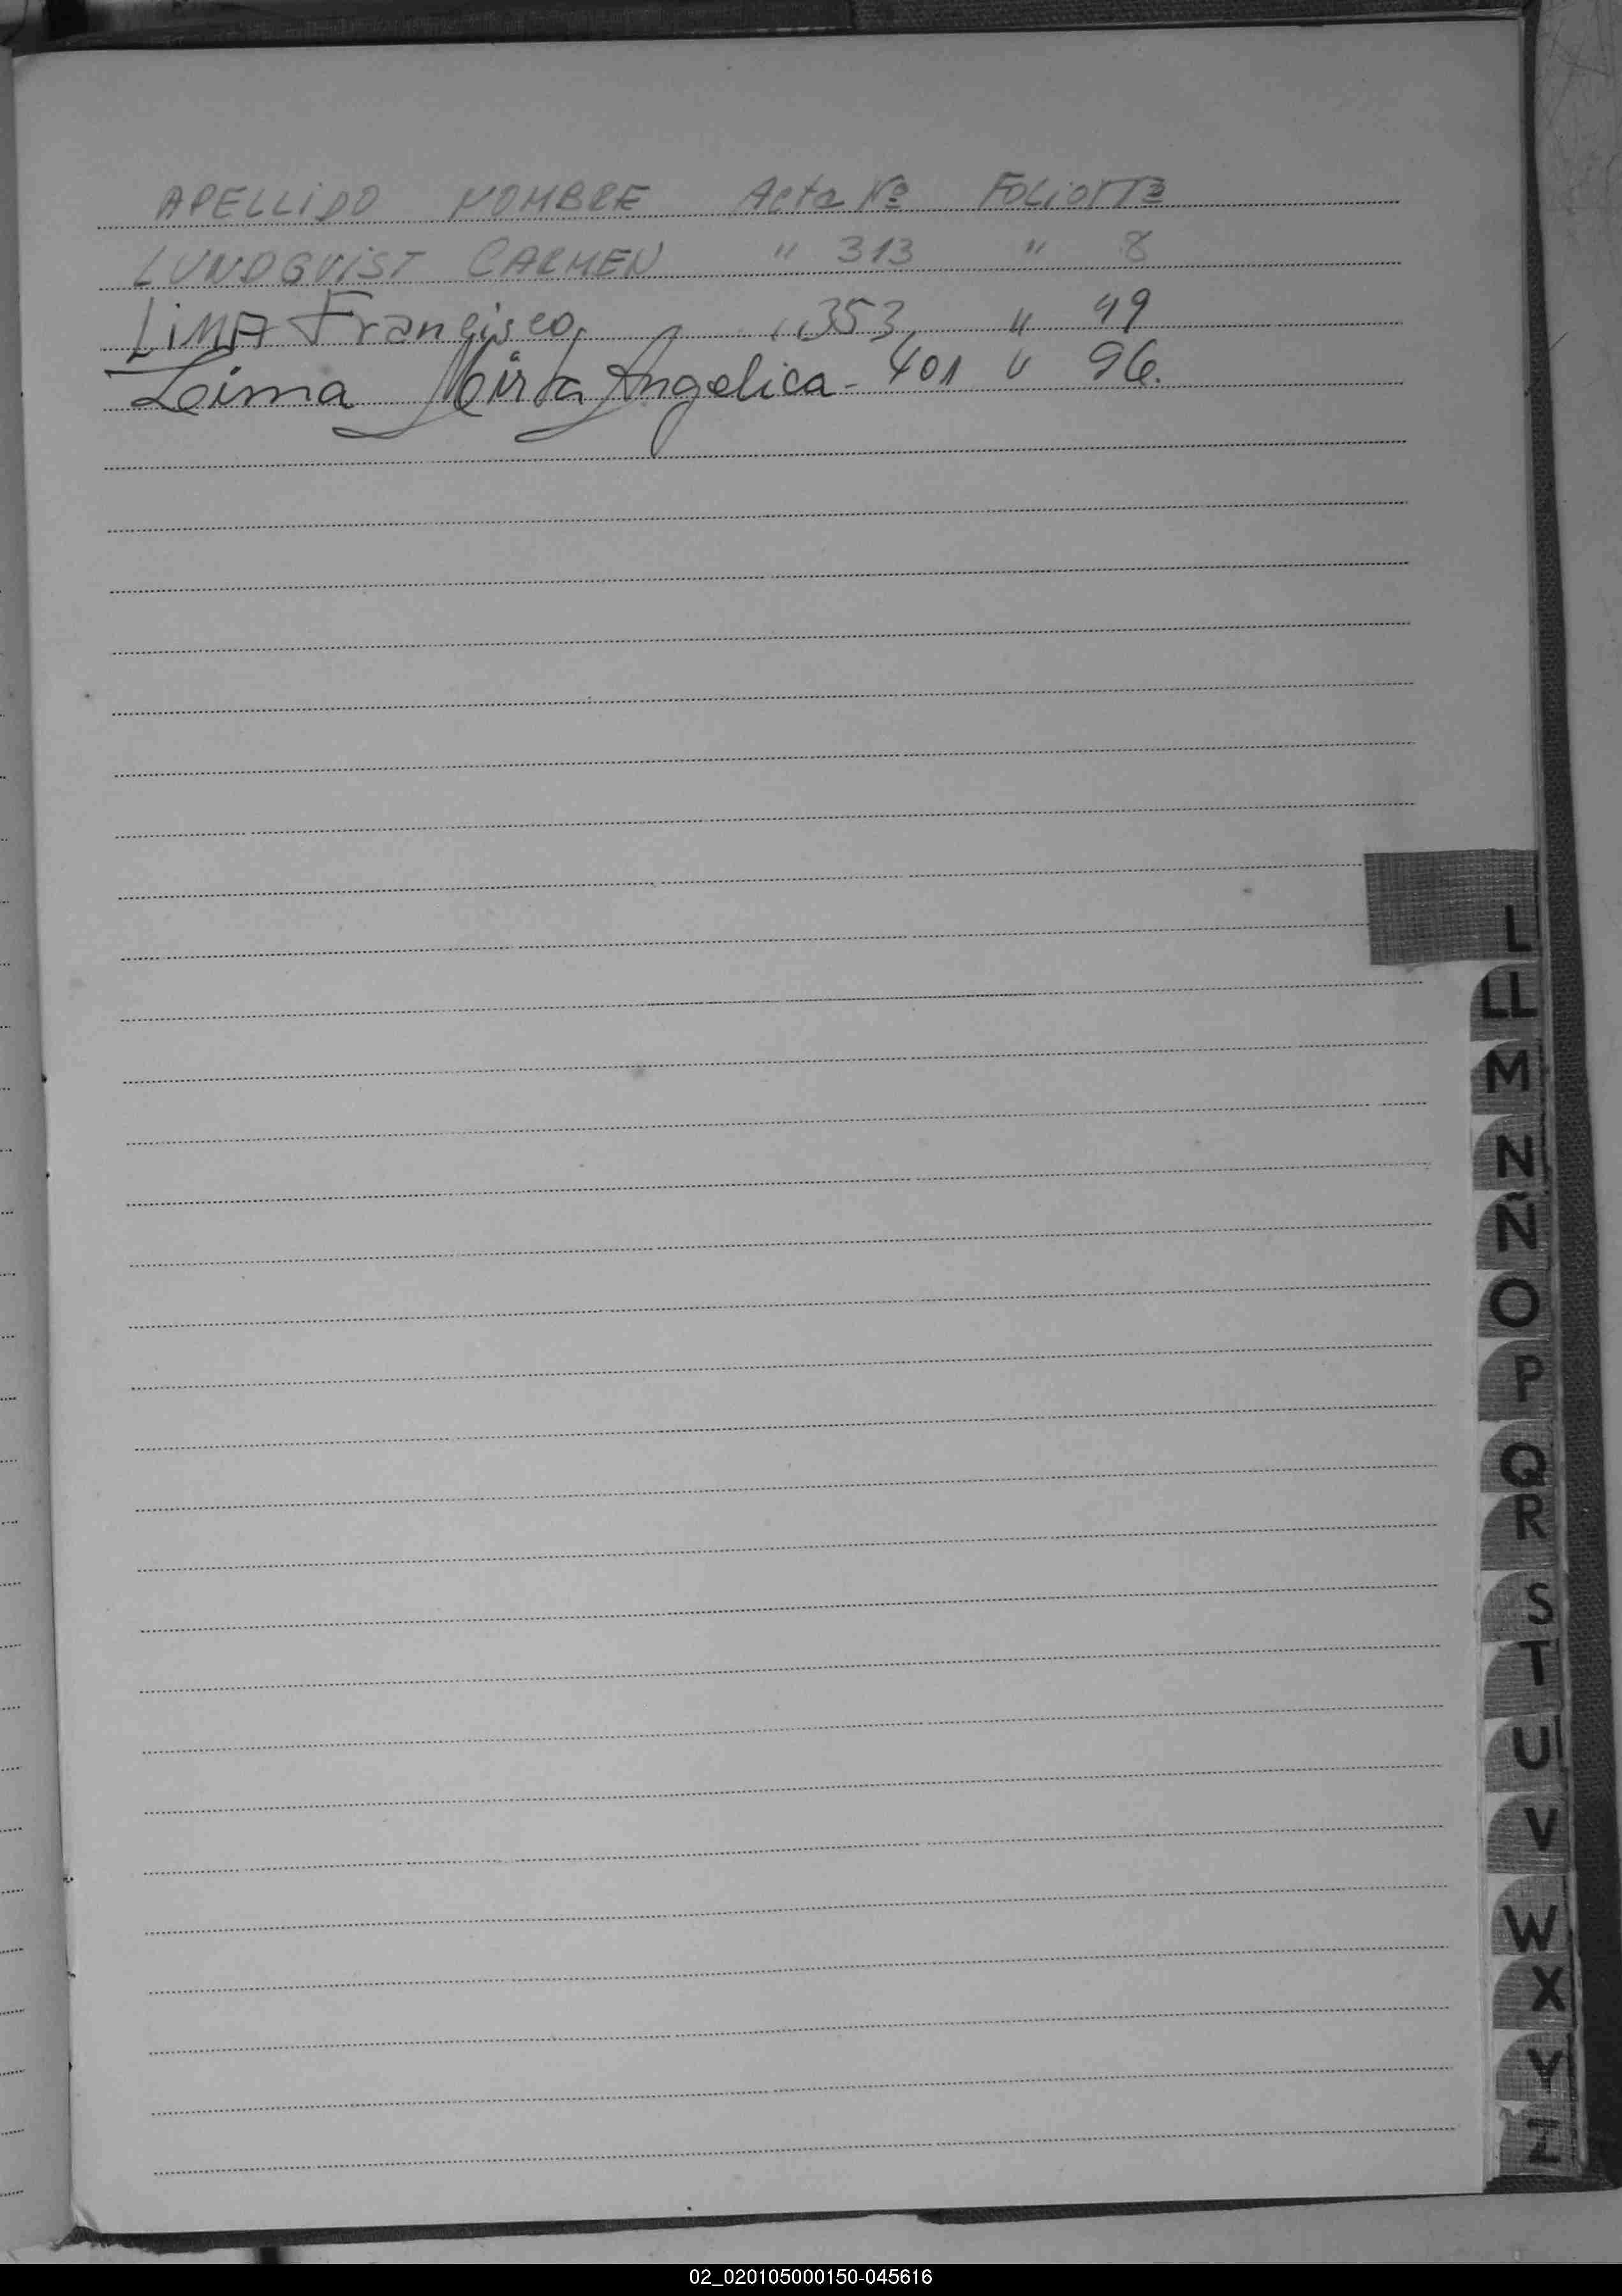 APELLIDO NOMBRE Acta Nº FOLIO
LUNDGVIST CARMEN " 313 " 8
LiMA Francisco, " 353, " 49
Leima Mirta Angelica - 401 " 96.
L
LL
M
N
Ñ
O
P
Q
R
S
T
U
V
W
X
Y
Z
02_020105000150-045616